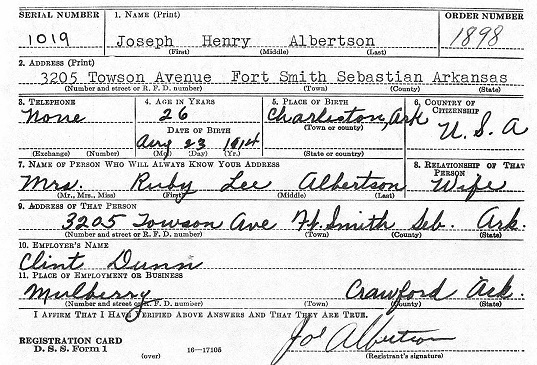 SERIAL NUMBER 1. NAME (Print) ORDER NUMBER
1019 Joseph Henry Albertson 1898
(First) (Middle) (Last)
2. ADDRESS (Print)
3205 Towson Avenue Fort Smith Sebastian Arkansas
(Number and street or R. F. D. number) (Town) (County) (State)
3. TELEPHONE 4. AGE IN YEARS 5. PLACE OF BIRTH 6. COUNTRY OF CITIZENSHIP
None 26 Charleston, Ark U. S. A
DATE OF BIRTH (Town or county)
Aug 23 1914
(Exchange) (Number) (Mo.) (Day) (Yr.) (State or country)
7. NAME OF PERSON WHO WILL ALWAYS KNOW YOUR ADDRESS 8. RELATIONSHIP OF THAT PERSON
Mrs. Ruby Lee Albertson Wife
(Mr., Mrs., Miss) (First) (Middle) (Last)
9. ADDRESS OF THAT PERSON
3205 Towson Ave Ft. Smith Seb. Ark.
(Number and street or R. F. D. number) (Town) (County) (State)
10. EMPLOYER'S NAME
Clint Dunn
11. PLACE OF EMPLOYMENT OR BUSINESS
Mulberry Crawford Ark.
(Number and street or R. F. D. number) (Town) (County) (State)
I AFFIRM THAT I HAVE VERIFIED ABOVE ANSWERS AND THAT THEY ARE TRUE.
Joe Albertson
REGISTRATION CARD
D. S. S. Form 1 (over) 16—17105 (Registrant's signature)